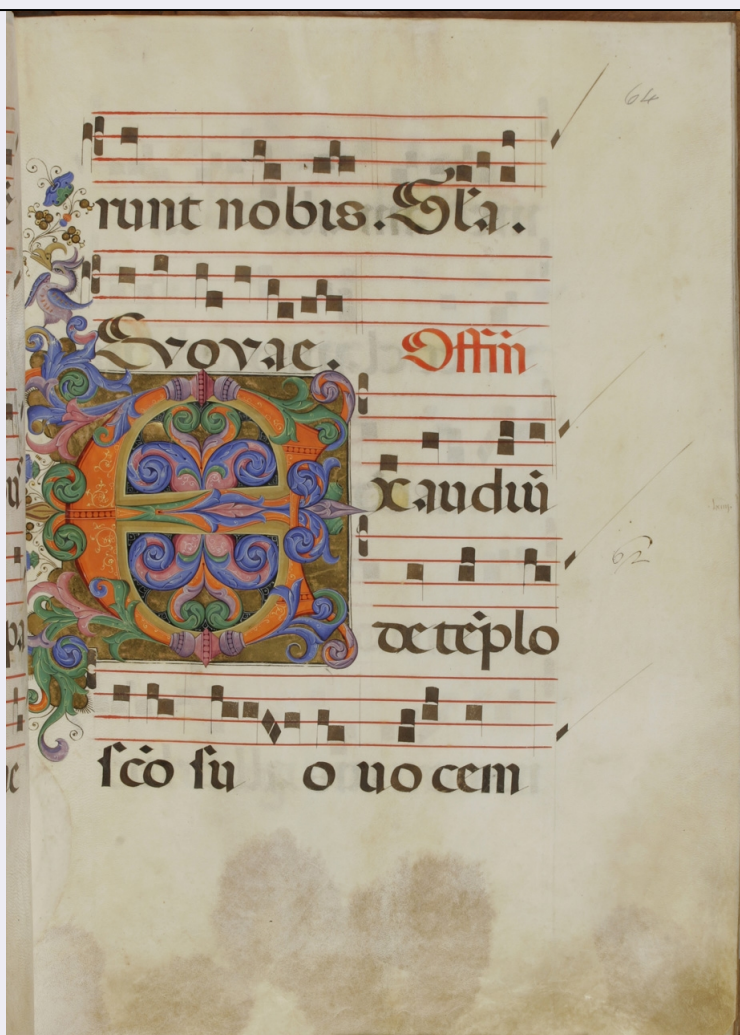 64
runt nobis. Gl̃a.
Evovae. Offiñ
Exaudiũ
62
de tẽplo
ſcõ ſu o uo cem